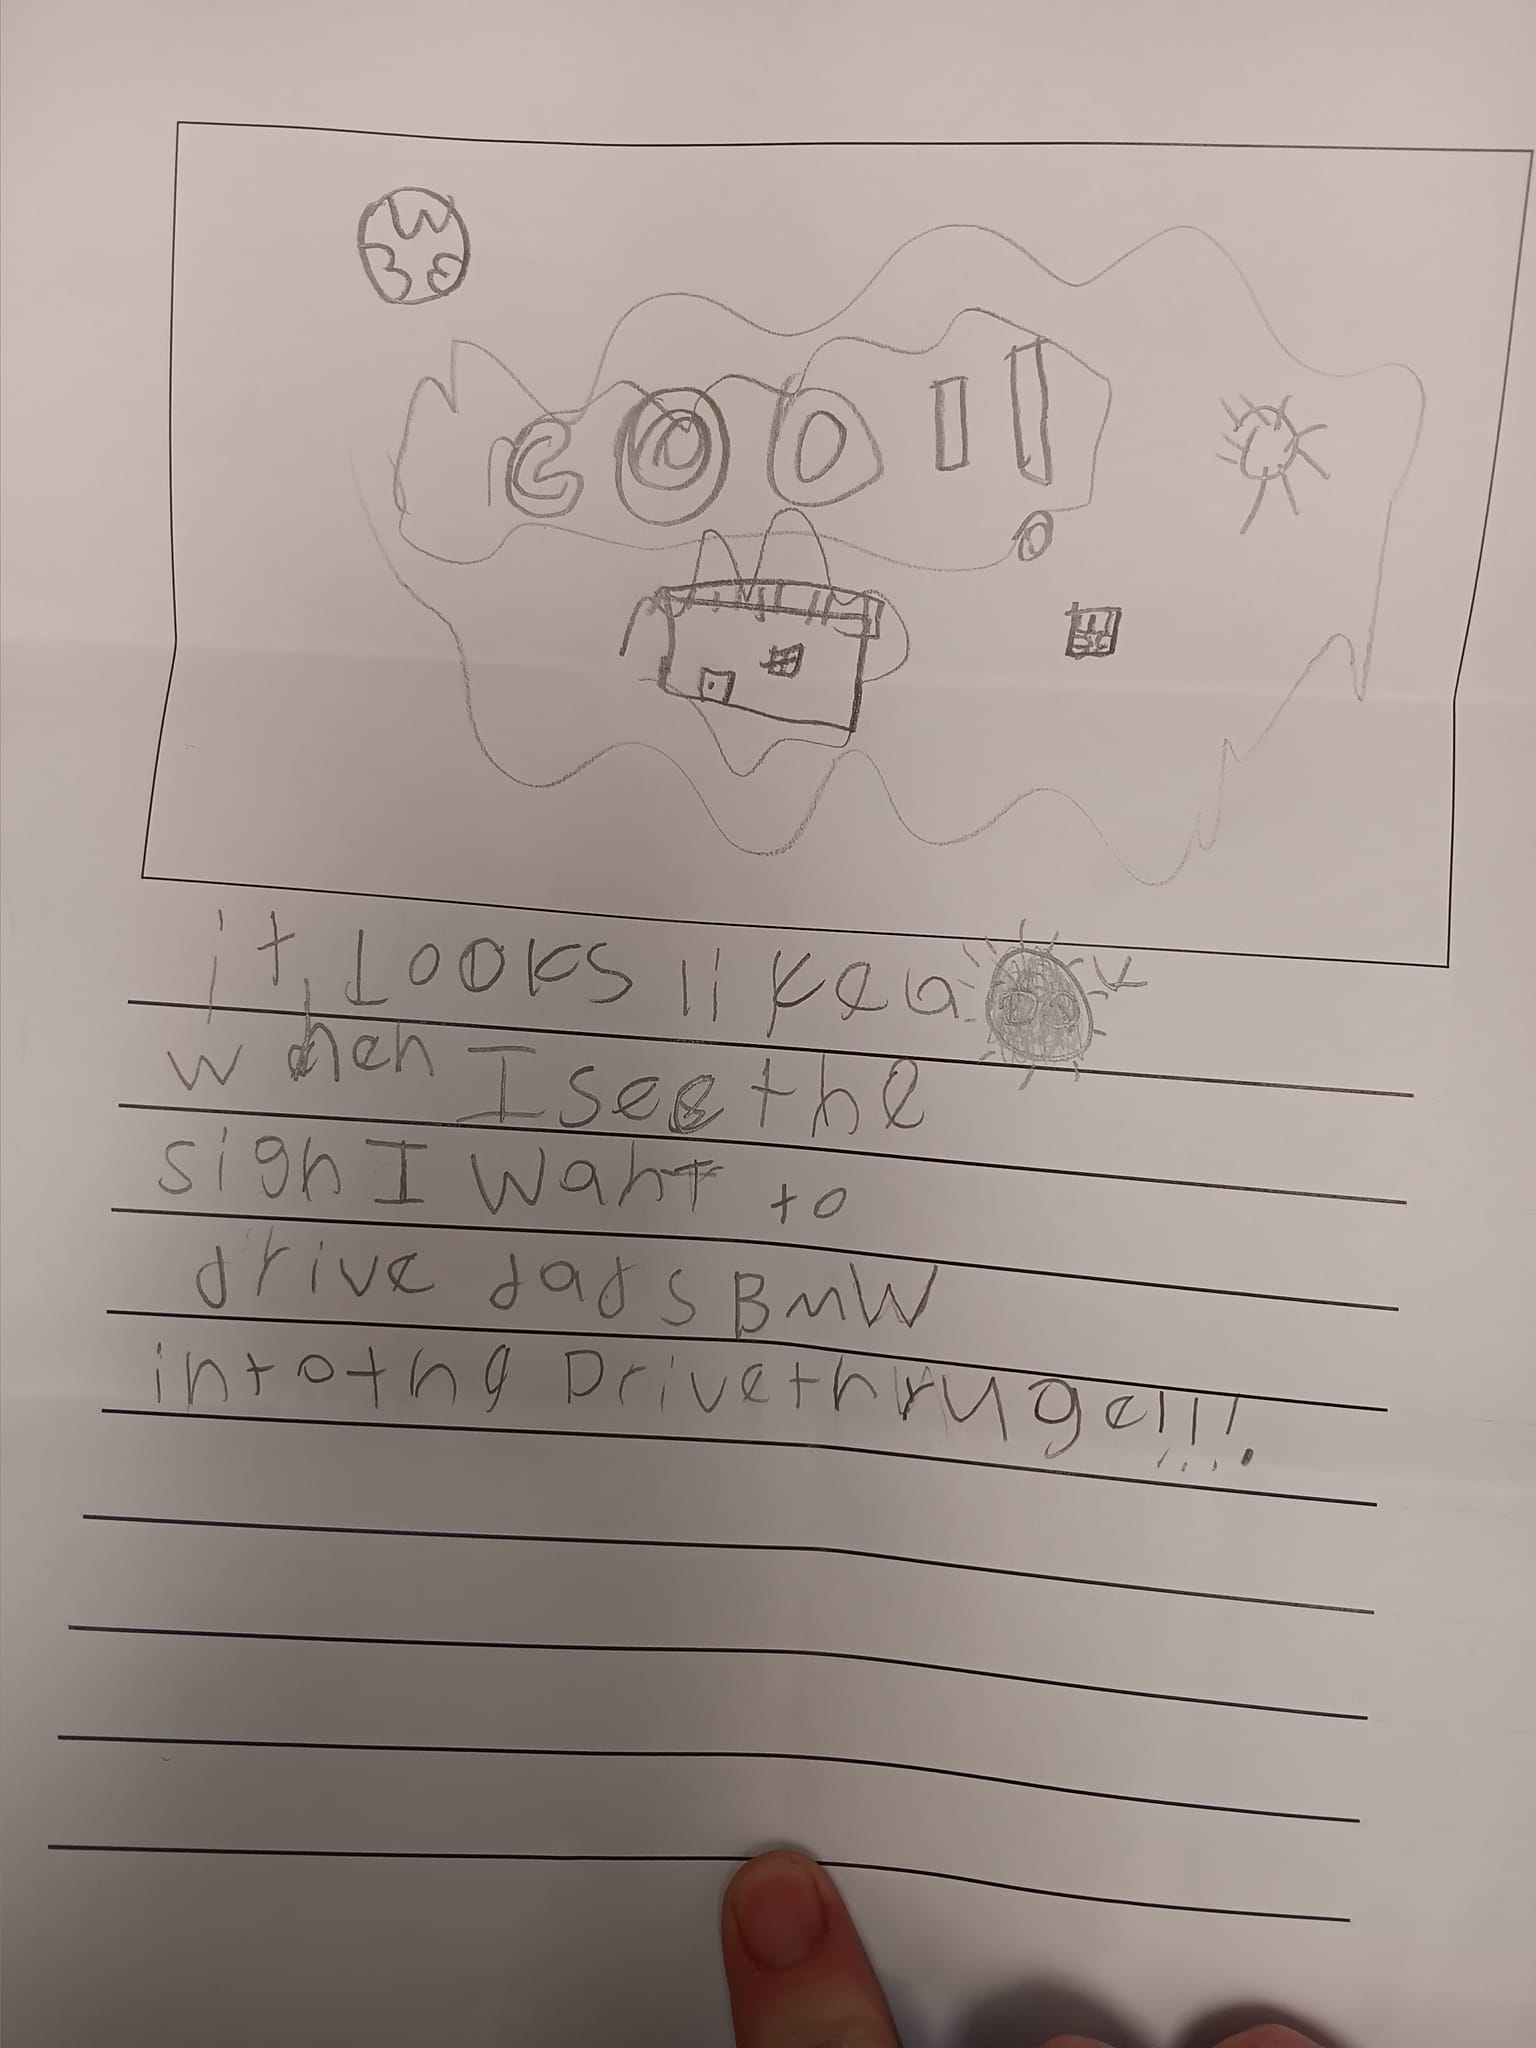 W
B E
COOl!
it looks like a
when I see the
sign I want to
drive dads BMW
into the Drivethruge!!!!